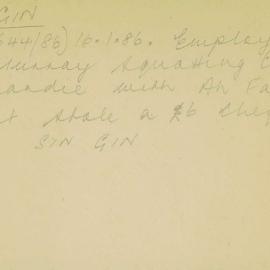 GIN
644/86) 16.1.86. Employ
Murray Squatting C
andie with Ah Fa
t stole a £6 cheq
SIN GIN